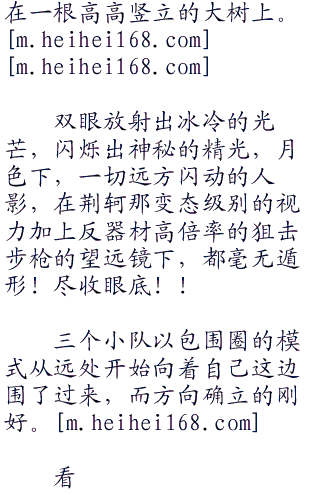 在一根高高竖立的大树上。
[m.heihei168.com]
[m.heihei168.com]
双眼放射出冰冷的光
芒，闪烁出神秘的精光，月
色下，一切远方闪动的人
影，在荆轲那变态级别的视
力加上反器材高倍率的狙击
步枪的望远镜下，都毫无遁
形！尽收眼底！！
三个小队以包围圈的模
式从远处开始向着自己这边
围了过来，而方向确立的刚
好。[m.heihei168.com]
看